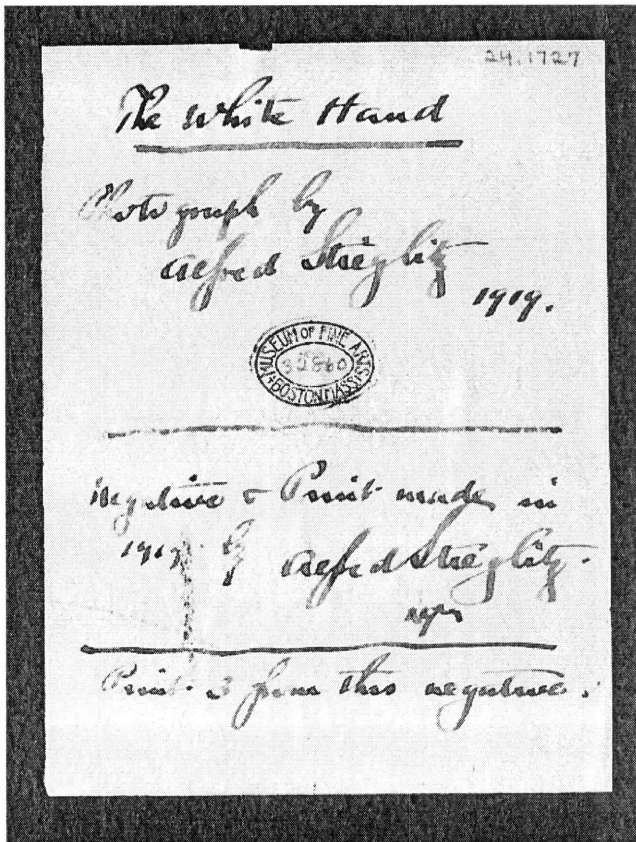 24.1727
The White Hand
Photograph by
Alfred Stieglitz
1919.
MUSEUM OF FINE ARTS
BOSTON MASS
Negative & Print made in
by Alfred Stieglitz.
Print 3 from this negative.